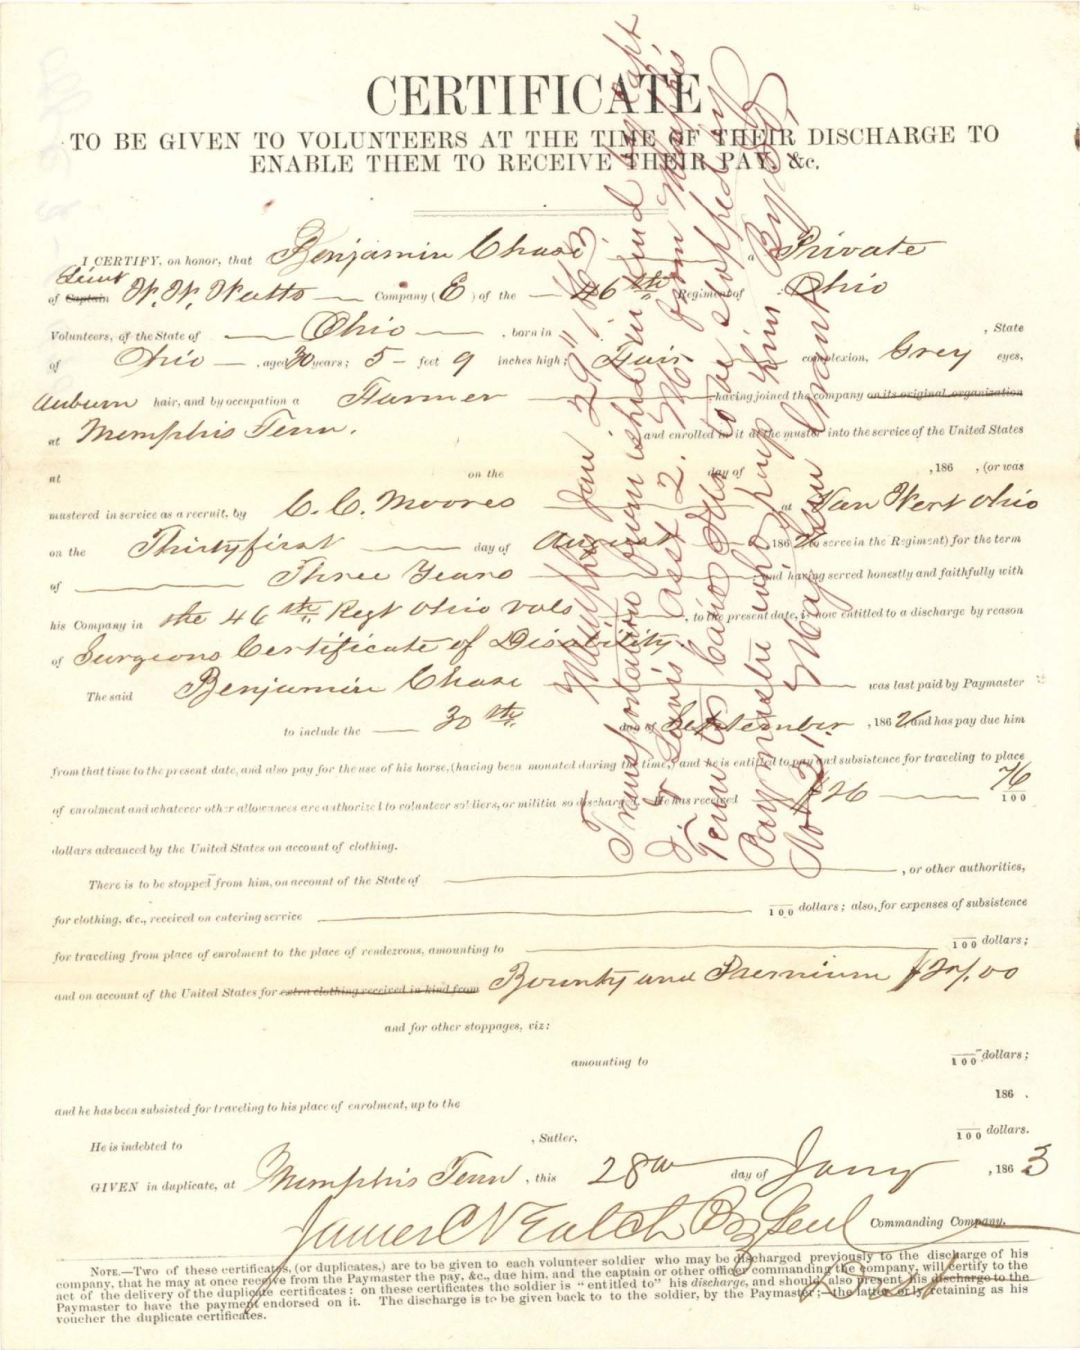 CERTIFICATE
TO BE GIVEN TO VOLUNTEERS AT THE TIME OF THEIR DISCHARGE TO
ENABLE THEM TO RECEIVE THEIR PAY, &c.
I CERTIFY, on honor, that Benjamin Chase a Private
Lieut
of Captain W. W. Watts Company (E) of the 46th Regiment of Ohio
Volunteers, of the State of Ohio, born in , State
of Ohio, aged 30 years; 5 feet 9 inches high; Fair complexion, Grey eyes,
Auburn hair, and by occupation a Farmer, having joined the company on its original organization
at Memphis Tenn. and enrolled in it at the muster into the service of the United States
at on the day of , 186 , (or was
mustered in service as a recruit, by C. C. Moores at Van Wert Ohio
on the Thirtyfirst day of August, 1862 to serve in the Regiment) for the term
of Three Years, and having served honestly and faithfully with
his Company in the 46th Regt Ohio Vols, to the present date, is now entitled to a discharge by reason
of Surgeons Certificate of Disability.
The said Benjamin Chase was last paid by Paymaster
to include the 30th day of September, 1862 and has pay due him
from that time to the present date, and also pay for the use of his horse, (having been mounted during the time,) and he is entitled to pay and subsistence for traveling to place
of enrolment and whatever other allowances are authorized to volunteer soldiers, or militia so discharged. He has received $26 76/100
dollars advanced by the United States on account of clothing.
There is to be stopped from him, on account of the State of , or other authorities,
for clothing, &c., received on entering service 100 dollars; also, for expenses of subsistence
for traveling from place of enrolment to the place of rendezvous, amounting to 100 dollars;
and on account of the United States for extra clothing received in kind from Bounty and Premium
and for other stoppages, viz:
amounting to 100 dollars;
and he has been subsisted for traveling to his place of enrolment, up to the 186 .
He is indebted to , Sutler, 100 dollars.
GIVEN in duplicate, at Memphis Tenn, this 28th day of Jany, 1863
James C Veatch Brig Genl Commanding Company.
NOTE.—Two of these certificates, (or duplicates,) are to be given to each volunteer soldier who may be discharged previously to the discharge of his
company, that he may at once receive from the Paymaster the pay, &c., due him, and the captain or other officer commanding the company, will certify to the
act of the delivery of the duplicate certificates: on these certificates the soldier is "entitled to" his discharge, and should also present his discharge to the
Paymaster to have the payment endorsed on it. The discharge is to be given back to to the soldier, by the Paymaster;—the latter only retaining as his
voucher the duplicate certificates.
Memphis Jan 29" 1863
Transportation furnished in kind by Capt
Lewis asst 2. M. from Memphis,
Tenn to Cairo Ills to be stopped by
Paymaster who pays him By order